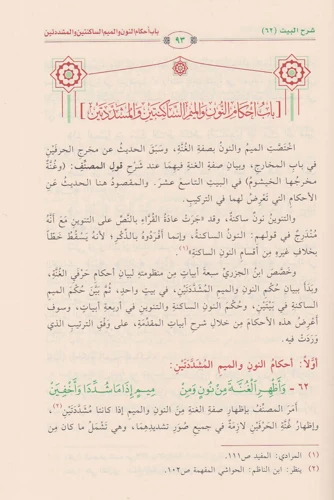 شرح البيت (٦٢)
٩٣
باب أحكام النون والميم الساكنتين والمشددتين
[بَابُ أَحْكَامِ النُّونِ وَالمِيمِ السَّاكِنَتَيْنِ وَالمُشَدَّدَتَيْنِ]
اخْتَصَّتِ الميمُ والنونُ بصفةِ الغُنَّةِ، وسَبَقَ الحديثُ عن مخرجِ الحرفَيْنِ
في بابِ المخارجِ، وبيانِ صفةِ الغنةِ فيهما عند شَرْحِ قولِ المصنِّفِ: (وغُنَّةٌ
مخرجُها الخيشومُ) في البيتِ التاسعَ عشرَ. والمقصودُ هنا الحديثُ عن
الأحكامِ التي تَعْرِضُ لهما في التركيبِ.
والتنوينُ نونٌ ساكنةٌ، وقد جَرَتْ عادةُ القُرَّاءِ بالنَّصِّ على التنوينِ مَعَ أنَّهُ
مُنْدَرِجٌ في قولهم: النونُ الساكنة، وإنما أَفْرَدُوهُ بالذِّكْرِ؛ لأنهُ يَسْقُطُ خَطّاً
بخلافِ غيرِهِ مِن أقسامِ النونِ الساكنةِ(١).
وخَصَّصَ ابنُ الجزريِّ سبعةَ أبياتٍ مِن منظومتِهِ لبيانِ أحكامِ حَرْفَيِ الغُنَّةِ،
وبَدَأَ ببيانِ حُكْمِ النونِ والميمِ المُشَدَّدَتَيْنِ، في بيتٍ واحدٍ، ثُمَّ بَيَّنَ حُكْمَ الميمِ
الساكنةِ في بَيْتَيْنِ، وحُكْمَ النونِ الساكنةِ والتنوينِ في أربعةِ أبياتٍ، وسوف
أَعْرِضُ هذه الأحكامَ مِن خلالِ شرحِ أبياتِ المقدِّمةِ، على وَفْقِ الترتيبِ الذي
وَرَدَتْ فيه.
أوَّلاً: أحكامُ النونِ والميمِ المُشَدَّدَتَيْنِ:
٦٢ - وَأَظْهِرِ الْغُنَّةَ مِنْ نُونٍ وَمِنْ مِيمٍ إِذَا مَا شُدِّدَا وَأَخْفِيَنْ
أَمَرَ المصنِّفُ بإظهارِ صفةِ الغنةِ مِن النونِ والميمِ إذا كانتا مُشَدَّدَتَيْنِ(٢)،
وإظهارُ غُنَّةِ الحَرْفَيْنِ لازمةٌ في جميعِ صُوَرِ تشديدِهِمَا، وهي تَشْمَلُ ما كان مِن
(١) المرادي: المفيد ص١١١.
(٢) ينظر: ابن الناظم: الحواشي المفهمة ص١٠٢.